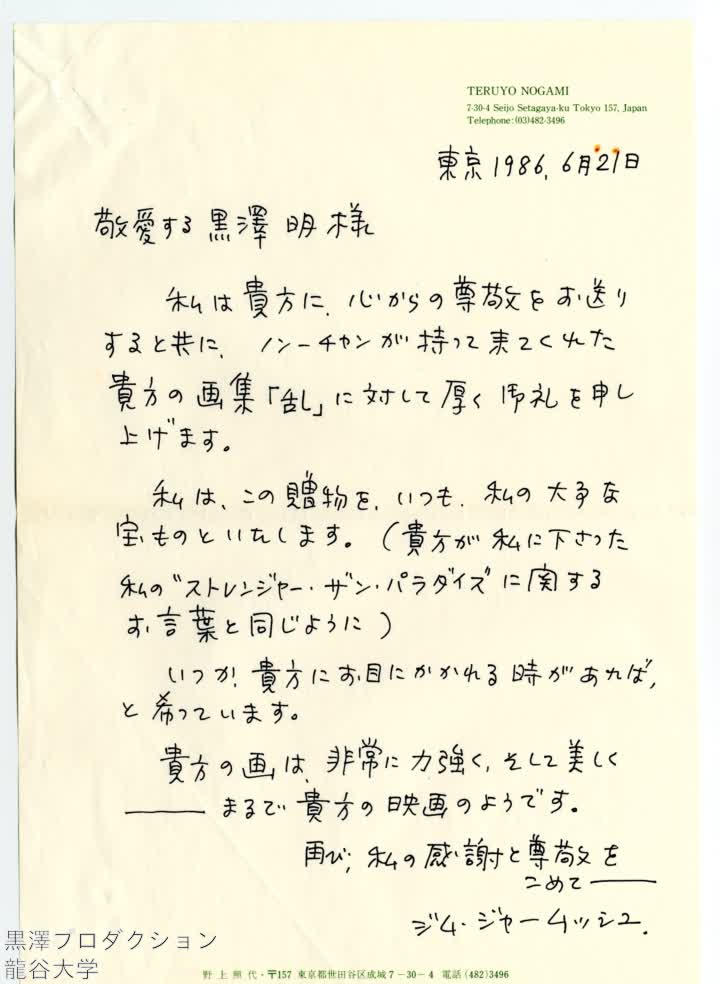 TERUYO NOGAMI
7-30-4 Seijo Setagaya-ku Tokyo 157, Japan
Telephone:(03)482-3496
東京 1986, 6月27日
敬愛する 黒澤 明 様
私は貴方に、心からの尊敬をお送り
すると共に、ノンーチャンが持って来てくれた
貴方の画集「乱」に対して厚く御礼を申し
上げます。
私は、この贈物を、いつも、私の大事な
宝ものといたします。(貴方が私に下さった
私の"ストレンジャー・ザン・パラダイズ"に関する
お言葉と同じように)
いつか、貴方にお目にかかれる時があれば、
と希っています。
貴方の画は、非常に力強く、そして美しく
——— まるで貴方の映画のようです。
再び、私の感謝と尊敬を
こめて———
ジム・ジャームッシュ.
黒澤プロダクション
龍谷大学
野上照代・〒157 東京都世田谷区成城7-30-4 電話(482)3496